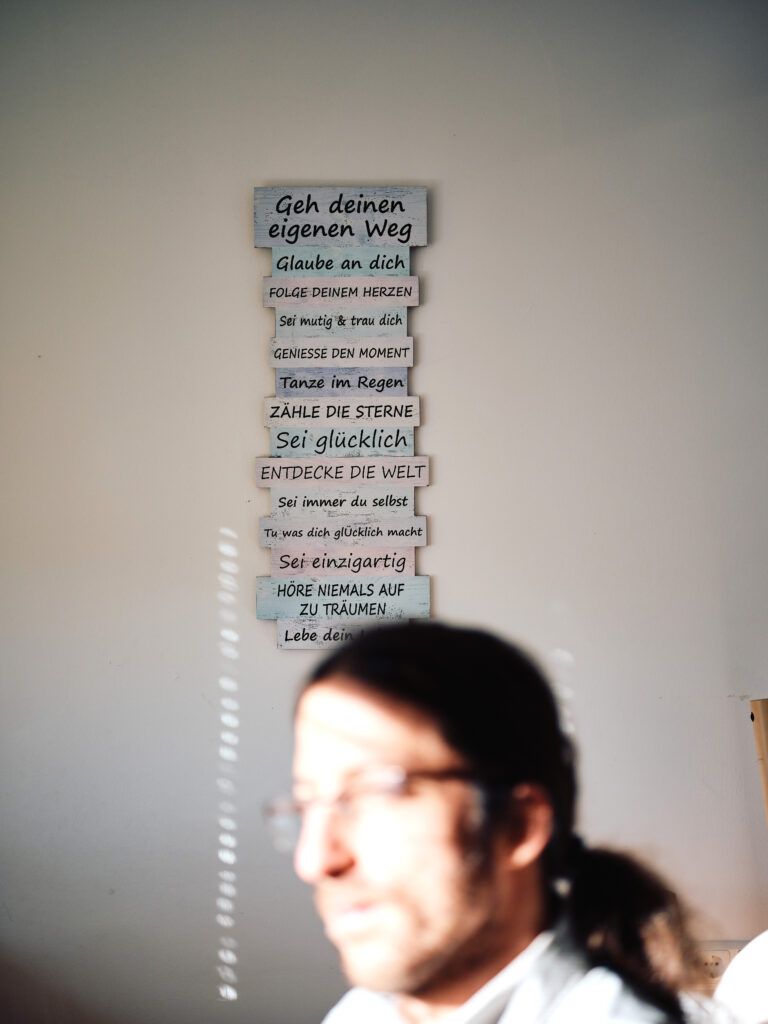 Geh deinen
eigenen Weg
Glaube an dich
FOLGE DEINEM HERZEN
Sei mutig & trau dich
GENIESSE DEN MOMENT
Tanze im Regen
ZÄHLE DIE STERNE
Sei glücklich
ENTDECKE DIE WELT
Sei immer du selbst
Tu was dich glÜcklich macht
Sei einzigartig
HÖRE NIEMALS AUF
ZU TRÄUMEN
Lebe dein